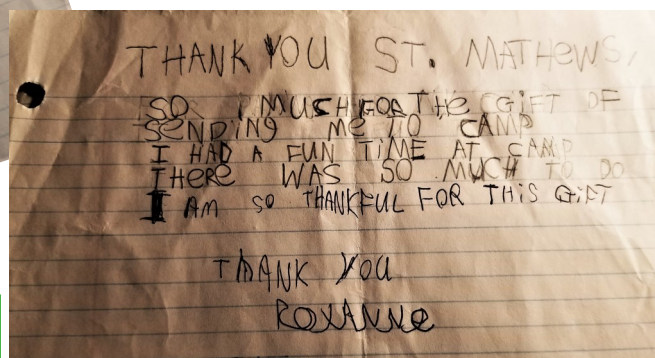 THANK YOU ST. MATHEWS,
SO MUSH FOR THE GIFT OF
SENDING ME TO CAMP
I HAD A FUN TIME AT CAMP
THERE WAS SO MUCH TO DO
I AM SO THANKFUL FOR THIS GIFT
THANK YOU
ROXANNe